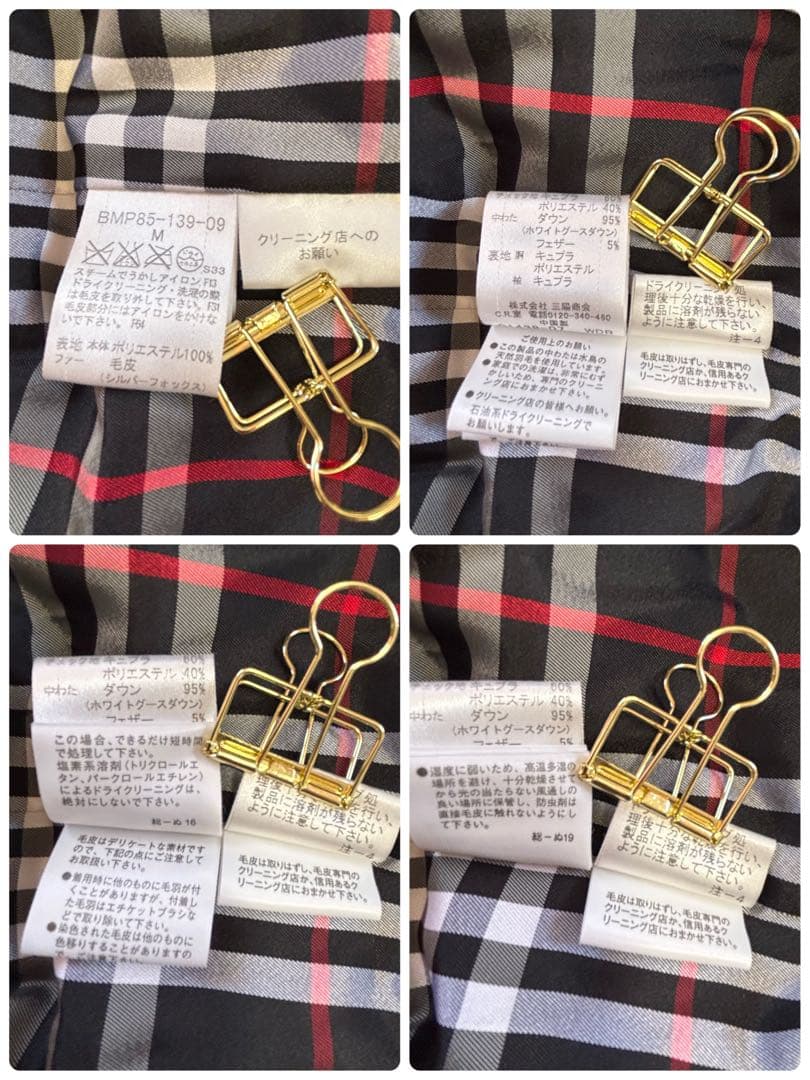 BMP85-139-09
M
S33
スチームでうかしアイロン F13
ドライクリーニング・洗濯の際
は毛皮を取り外して下さい。F31
毛皮部分にはアイロンをかけな
いで下さい。F64
表地 本体 ポリエステル100%
ファー 毛皮
(シルバーフォックス)
クリーニング店への
お願い
キュプラ 60%
ポリエステル 40%
中わた ダウン 95%
(ホワイトグースダウン)
フェザー 5%
表地 胴 キュプラ
ポリエステル
袖 キュプラ
株式会社 三陽商会
C.R.室 電話0120-340-460
中国製
ご使用上のお願い
●この製品の中わたは水鳥の
天然羽毛を使用しています。
●家庭での洗濯は、非常にむず
かしいため、専門のクリーニ
ング店にお任せ下さい。
●クリーニング店の皆様へお願い。
石油系ドライクリーニングで
お願いします。
ドライクリーニング処
理後十分な乾燥を行い、
製品に溶剤が残らない
ように注意して下さい。
注－4
毛皮は取りはずし、毛皮専門の
クリーニング店か、信用あるク
リーニング店におまかせ下さい。
キュプラ 60%
ポリエステル 40%
中わた ダウン 95%
(ホワイトグースダウン)
フェザー 5%
この場合、できるだけ短時間
で処理して下さい。
塩素系溶剤(トリクロールエ
タン、パークロールエチレン)
によるドライクリーニングは、
絶対にしないで下さい。
総－ぬ16
毛皮はデリケートな素材です
ので、下記の点にご注意して
お取扱い下さい。
●着用時に他のものに毛羽が付
くことがありますが、付着し
た毛羽はエチケットブラシな
どで取り除いて下さい。
●染色された毛皮は他のものに
色移りすることがありますの
で、ご注意下さい。
処
理後十分な乾燥を行い、
製品に溶剤が残らない
ように注意して下さい。
注－4
毛皮は取りはずし、毛皮専門の
クリーニング店か、信用あるク
リーニング店におまかせ下さい。
キュプラ 60%
ポリエステル 40%
中わた ダウン 95%
(ホワイトグースダウン)
フェザー 5%
●湿度に弱いため、高温多湿の
場所を避け、十分乾燥させて
から光の当たらない風通しの
良い場所に保管し、防虫剤は
直接毛皮に触れないようにし
て下さい。
総－ぬ19
グ処
理後十分な乾燥を行い、
製品に溶剤が残らない
ように注意して下さい。
注－4
毛皮は取りはずし、毛皮専門の
クリーニング店か、信用あるク
リーニング店におまかせ下さい。